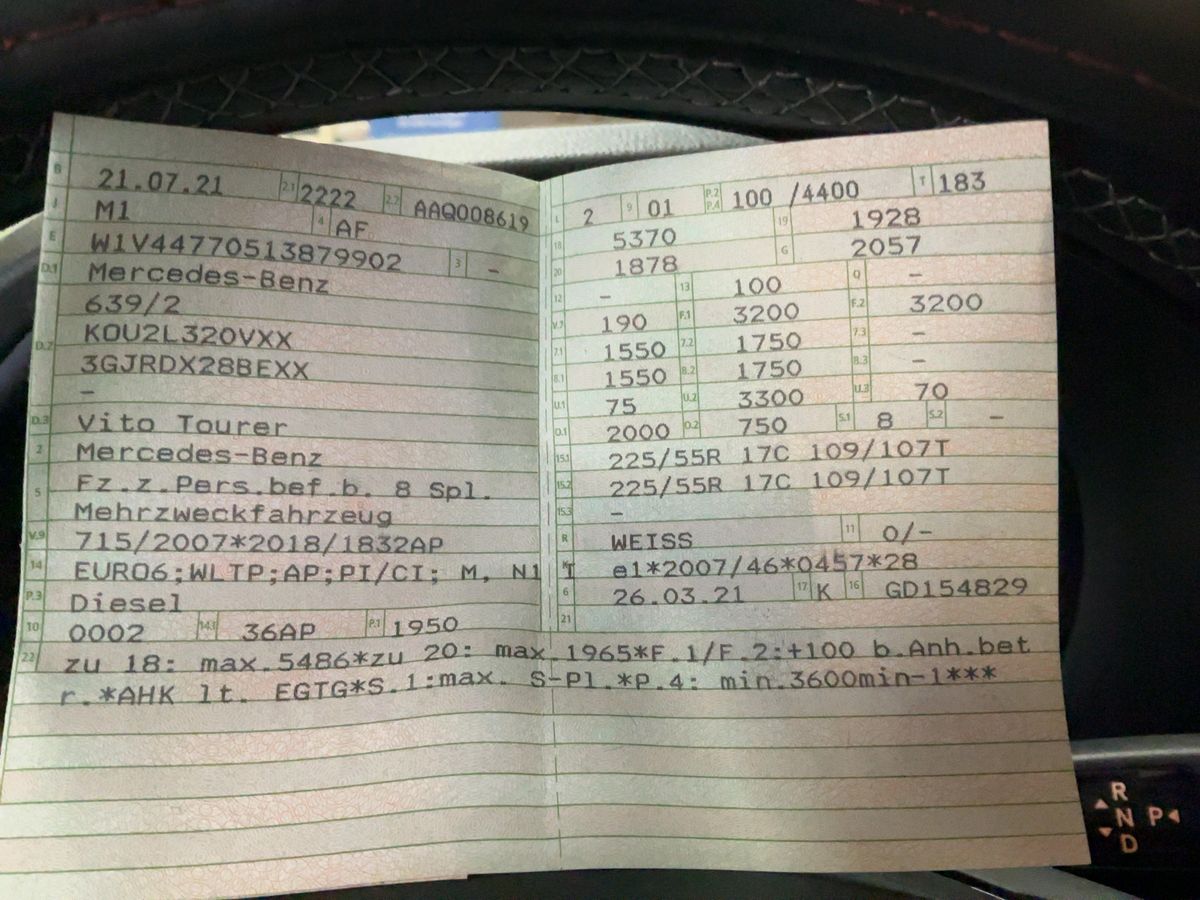 B 21.07.21 2.1 2222 2.2 AAQ008619
J M1 4 AF
E W1V44770513879902 3 -
D.1 Mercedes-Benz
639/2
D.2 KOU2L320VXX
3GJRDX28BEXX
-
D.3 Vito Tourer
2 Mercedes-Benz
5 Fz.z.Pers.bef.b. 8 Spl.
Mehrzweckfahrzeug
V.9 715/2007*2018/1832AP
14 EURO6;WLTP;AP;PI/CI; M, N1 I
P.3 Diesel
10 0002 14.1 36AP P.1 1950
L 2 9 01 P.2 P.4 100 /4400 T 183
18 5370 19 1928
20 1878 G 2057
12 - 13 100 Q -
V.7 190 F.1 3200 F.2 3200
7.1 1550 7.2 1750 7.3 -
8.1 1550 8.2 1750 8.3 -
U.1 75 U.2 3300 U.3 70
O.1 2000 O.2 750 S.1 8 S.2 -
15.1 225/55R 17C 109/107T
15.2 225/55R 17C 109/107T
15.3 -
R WEISS 11 0/-
K e1*2007/46*0457*28
6 26.03.21 17 K 16 GD154829
21
22 zu 18: max.5486*zu 20: max.1965*F.1/F.2:+100 b.Anh.bet
r.*AHK lt. EGTG*S.1:max. S-Pl.*P.4: min.3600min-1***
R
N P
D